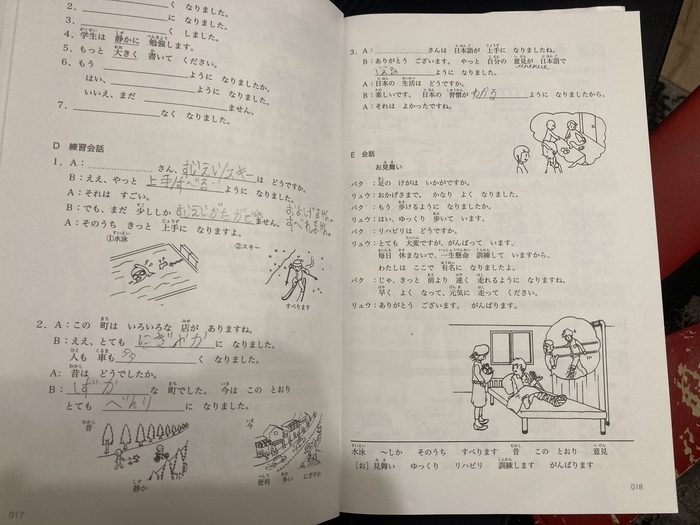 2. ＿＿＿＿＿＿＿く なりました。
3. ＿＿＿＿＿＿＿に なりました。
＿＿＿＿＿＿＿く しました。
4. 学生は 静かに 勉強します。
5. もっと 大きく 書いて ください。
6. もう ＿＿＿＿＿＿＿ように なりましたか。
はい、＿＿＿＿＿＿＿ように なりました。
いいえ、まだ ＿＿＿＿＿＿＿ません。
7. ＿＿＿＿＿＿＿なく なりました。
D 練習会話
1. A：…………………さん、スキーは どうですか。
B：ええ、やっと 上手/すべるように なりました。
A：それは すごい。
B：でも、まだ 少ししか ません。
A：そのうち きっと 上手に なりますよ。
①水泳 ②スキー
すべります
2. A：この 町は いろいろな 店が ありますね。
B：ええ、とても にぎやかに なりました。
人も 車も 多く なりました。
A：昔は どうでしたか。
B：しずかな 町でした。 今は この とおり
とても べんりに なりました。
昔 今
静か 便利 多い にぎやか
017
3. A：…………………さんは 日本語が 上手に なりましたね。
B：ありがとう ございます。 やっと 自分の 意見が 日本語で
ように なりました。
A：日本の 生活は どうですか。
B：楽しいです。 日本の 習慣が わかるように なりましたから。
A：それは よかったですね。
E 会話
お見舞い
パク ：足の けがは いかがですか。
リュウ：おかげさまで、かなり よく なりました。
パク ：もう 歩けるように なりましたか。
リュウ：はい、ゆっくり 歩いて います。
パク ：リハビリは どうですか。
リュウ：とても 大変ですが、がんばって います。
毎日 休まないで、一生懸命 訓練して いますから、
わたしは ここで 有名に なりましたよ。
パク ：じゃ、きっと 前より 速く 走れるように なりますね。
早く よく なって、元気に 走って ください。
リュウ：ありがとう ございます。 がんばります。
水泳 ～しか そのうち すべります 昔 この とおり 意見
[お] 見舞い ゆっくり リハビリ 訓練します がんばります
018